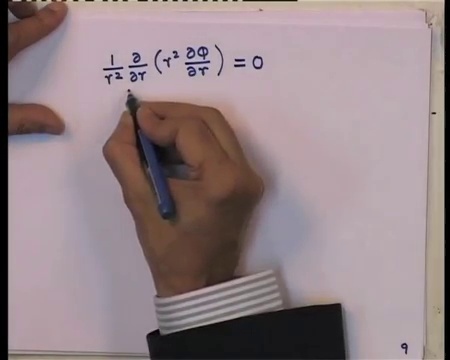 1/r² ∂/∂r (r² ∂Φ/∂r) = 0
9